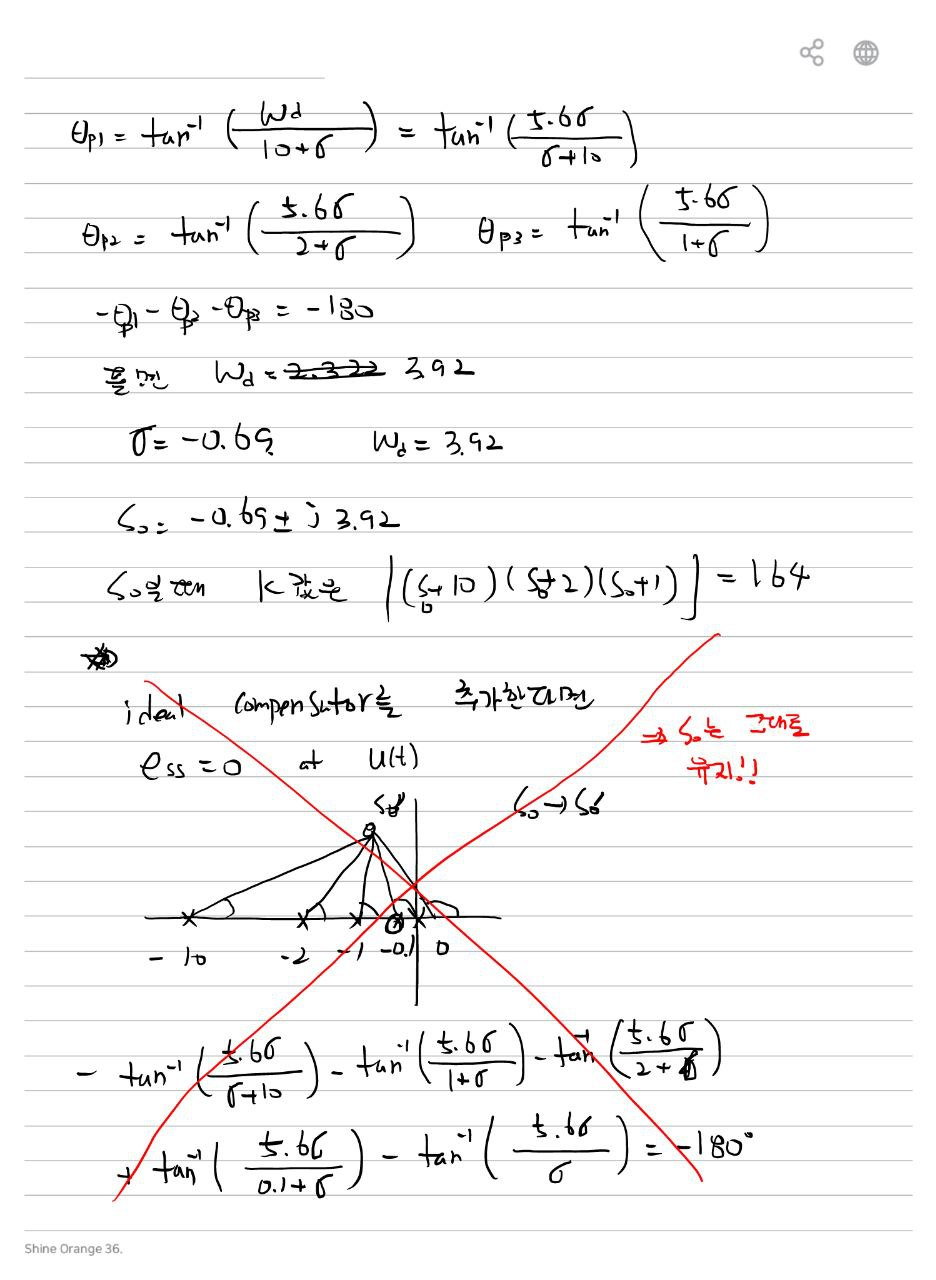 θp1 = tan⁻¹ (Wd / 10+σ) = tan⁻¹ (5.6σ / σ+10)
θp2 = tan⁻¹ (5.6σ / 2+σ) θp3 = tan⁻¹ (5.6σ / 1+σ)
-θp1 - θp2 - θp3 = -180
풀면 Wd = 2.322 3.92
σ = -0.69 Wd = 3.92
S₀ = -0.69 ± j 3.92
S₀일 때 K 값은 |(S₀+10)(S₀+2)(S₀+1)| = 164
ideal compensator를 추가한다면
→ S₀는 그대로
유지!!
ess = 0 at U(t)
S₀' S₀ → S₀'
-10 -2 -1 -0.1 0
- tan⁻¹ (5.6σ / σ+10) - tan⁻¹ (5.6σ / 1+σ) - tan⁻¹ (5.6σ / 2+σ)
+ tan⁻¹ (5.6σ / 0.1+σ) - tan⁻¹ (5.6σ / σ) = -180°
Shine Orange 36.